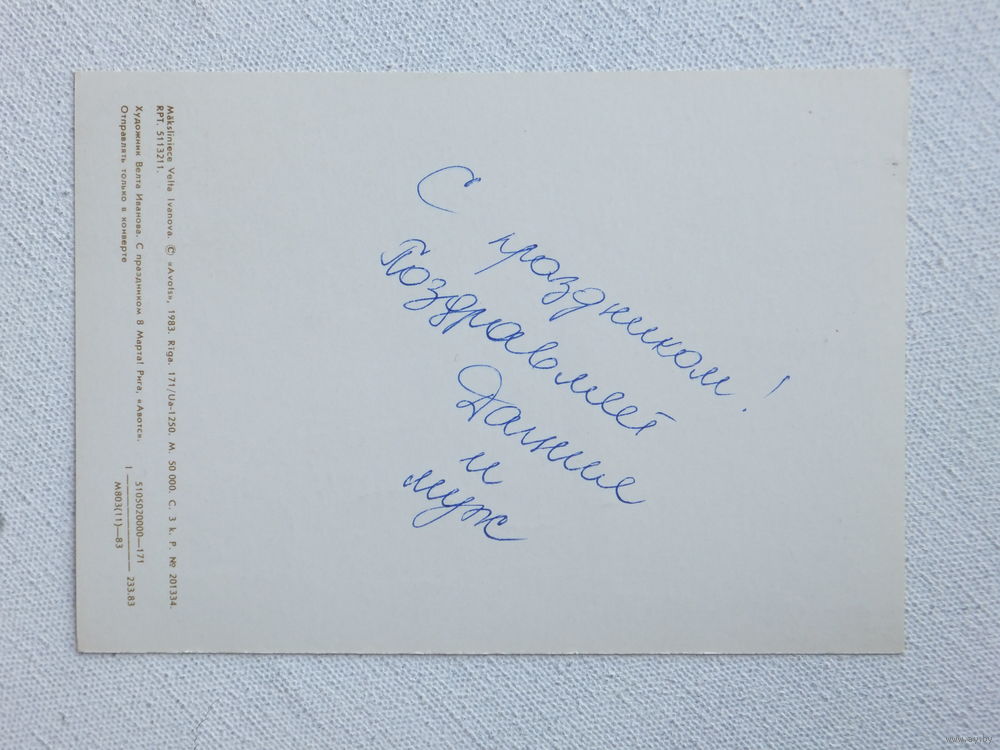 С праздником!
Поздравляет
Даниил
и
муж
Māksliniece Velta Ivanova. © «Avots», 1983. Rīga. 171/Ua-1250. M. 50 000. C. 3 k. P. № 201334.
RPT. 5113211.
Художник Велта Иванова. С праздником 8 Марта! Рига, «Авотс».
Отправлять только в конверте
5105020000—171
М803(11)—83
233.83
www.ay.by